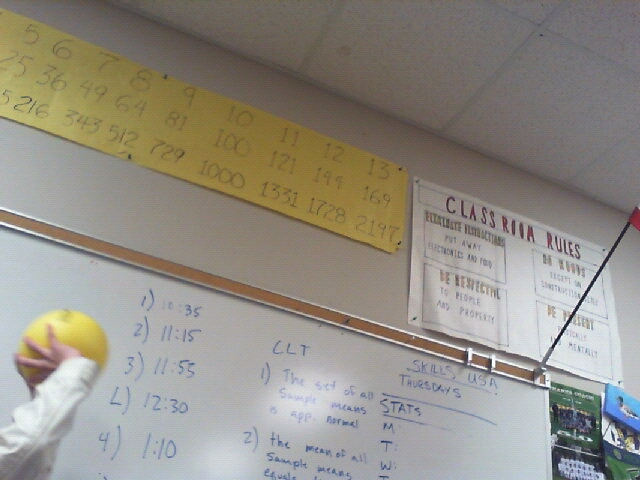 5 6 7 8 9 10 11 12 13
25 36 49 64 81 100 121 144 169
5 216 343 512 729 1000 1331 1728 2197
CLASSROOM RULES
PUT AWAY
ELECTRONICS AND FOOD
BE RESPECTFUL
TO PEOPLE
AND PROPERTY
NO HOODS
EXCEPT ON
CONSTRUCTION
BE PRESENT
MENTALLY
1) 10:35
2) 11:15
3) 11:55
L) 12:30
4) 1:10
CLT
1) The set of all
Sample means
is app. normal
2) the mean of all
Sample means
equals
SKILLS USA
THURSDAYS
STATS
M:
T:
W: